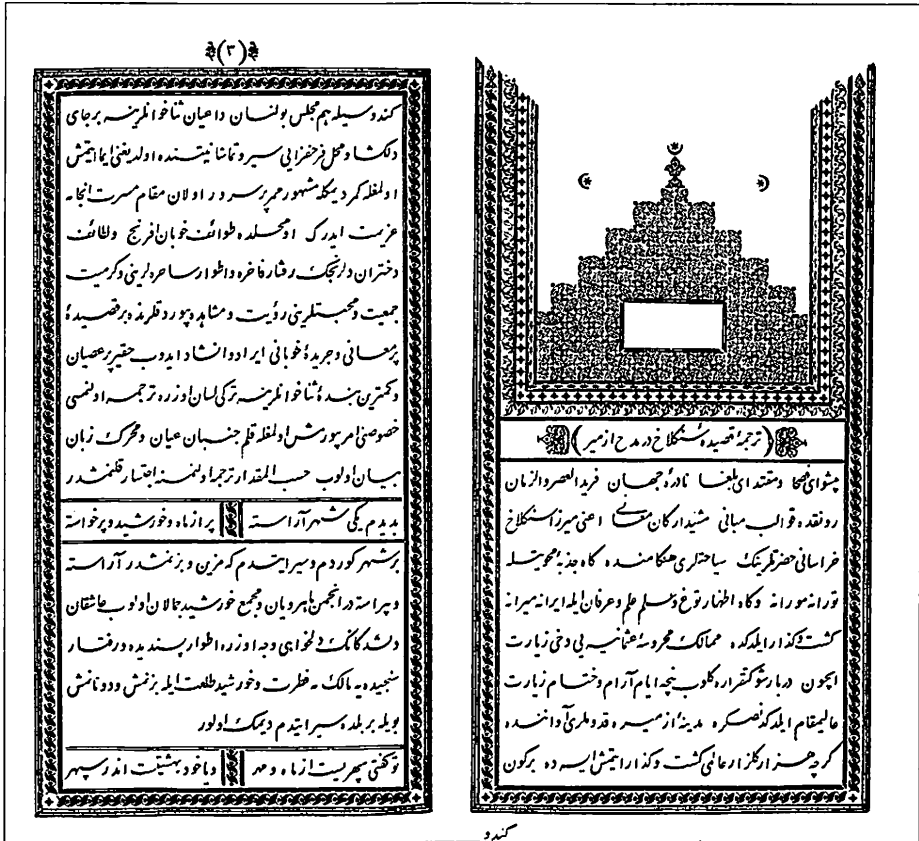 (ترجمۀ قصیدۀ سنکلاخ در مدح ازمیر)
پیشوای فصحا ومقتدای بلغا نادرۀ جهان فرید العصر والزمان
رونقده قوالب مبانی مشید ارکان معانی اعنی میرزا سنکلاخ
خراسانی حضرتلرینک سیاحتلری هنکامنده کاه جذبه محویتله
تورانه مورانه وکاه اظهار توغ وعلم علم وعرفان ایله ایرانه میرانه
کشت وکذار ایلدکده ممالک محروسۀ عثمانیه یی دخی زیارت
ایچون دربار شوکتقراره کلوب نیچه ایام آرام وختام زیارت
عالیمقام ایلدکدنصکره مدینۀ ازمیره قدوملری آواننده
کرچه هزار کلزار عالمی کشت وکذار ایتمش ایسه ده برکون
کندو
(٣)
کندوسیله هم مجلس بولنان داعیان ثناخوانلرینه برجای
دلکشا ومحل فرحفزایی سیر وتماشا نیتنده اولدیغنی ایما ایتمش
اولمغله کمر دیمکله مشهور ممر پرسرور اولان مقام مسرت انجامه
عزیمت ایدرک اومحلده طوائف خوبان افرنج ولطائف
دختران دلرنجک رفتار فاخره واطوار ساحره لرینی وکرمیت
جمعیت ومحبتلرینی رؤیت ومشاهده بیوردقلرنده برقصیدۀ
پرمعانی وجریدۀ خوبانی ایراد وانشاد ایدوب حقیر پرعصیان
وکمترین بندۀ ثناخوانلرینه ترکی لسان اوزره ترجمه اولنمسی
خصوصنی امر بیورمش اولمغله قلم جنبان عیان ومحرک زبان
بیان اولوب حسب المقدار ترجمه اولنمسنه اجتسار قلنمشدر
بدیدم یکی شهر آراسته پر از ماه وخورشید وپرخواسته
برشهر کوردم وسیر ایتدم که مزین وبزنمشدر آراسته
وپیراسته در انجمن ماهرویان ومجمع خورشید جمالان اولوب عاشقان
دلشدکانک دلخواهی وجه اوزره اطوار پسندیده ورفتار
سنجیده یه مالک مه فطرت وخورشید طلعت ایله بزنمش ودونانمش
بویله بر بلده سیر ایتدم دیمک اولور
توکفتی سپهریست از ماه ومهر ویاخود بهشتیست اندر سپهر